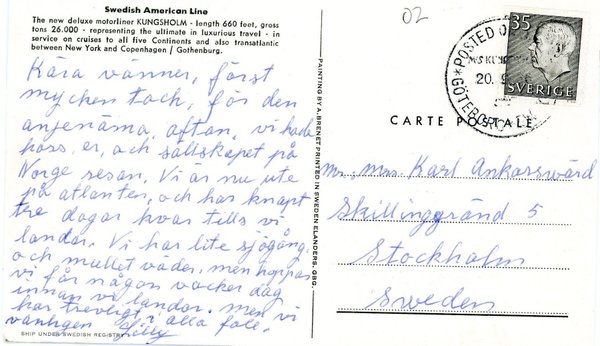 Swedish American Line
The new deluxe motorliner KUNGSHOLM - length 660 feet, gross
tons 26.000 - representing the ultimate in luxurious travel - in
service on cruises to all five Continents and also transatlantic
between New York and Copenhagen / Gothenburg.
Kära vänner, först
mycken tack, för den
angenäma, afton, vi hade
hoss, er, och sällskapet på
Norge resan. Vi är nu ute
på atlanten, och har knapt
tre dagar kvar tills vi
landar. Vi har lite sjögång,
och mullet väder, men hoppas
vi får någon vacker dag
innan vi landar. men vi
har trevligt i alla fall.
vänligen Lilly
SHIP UNDER SWEDISH REGISTRY
PAINTING BY A. BRENET PRINTED IN SWEDEN ELANDERS, GBG.
02
POSTED
M/S
20. 9.
GÖTEBORG
35
SVERIGE
CARTE POSTALE
Mr, Mrs Karl Ankarswärd
Skillinggränd 5
Stockholm
Sweden